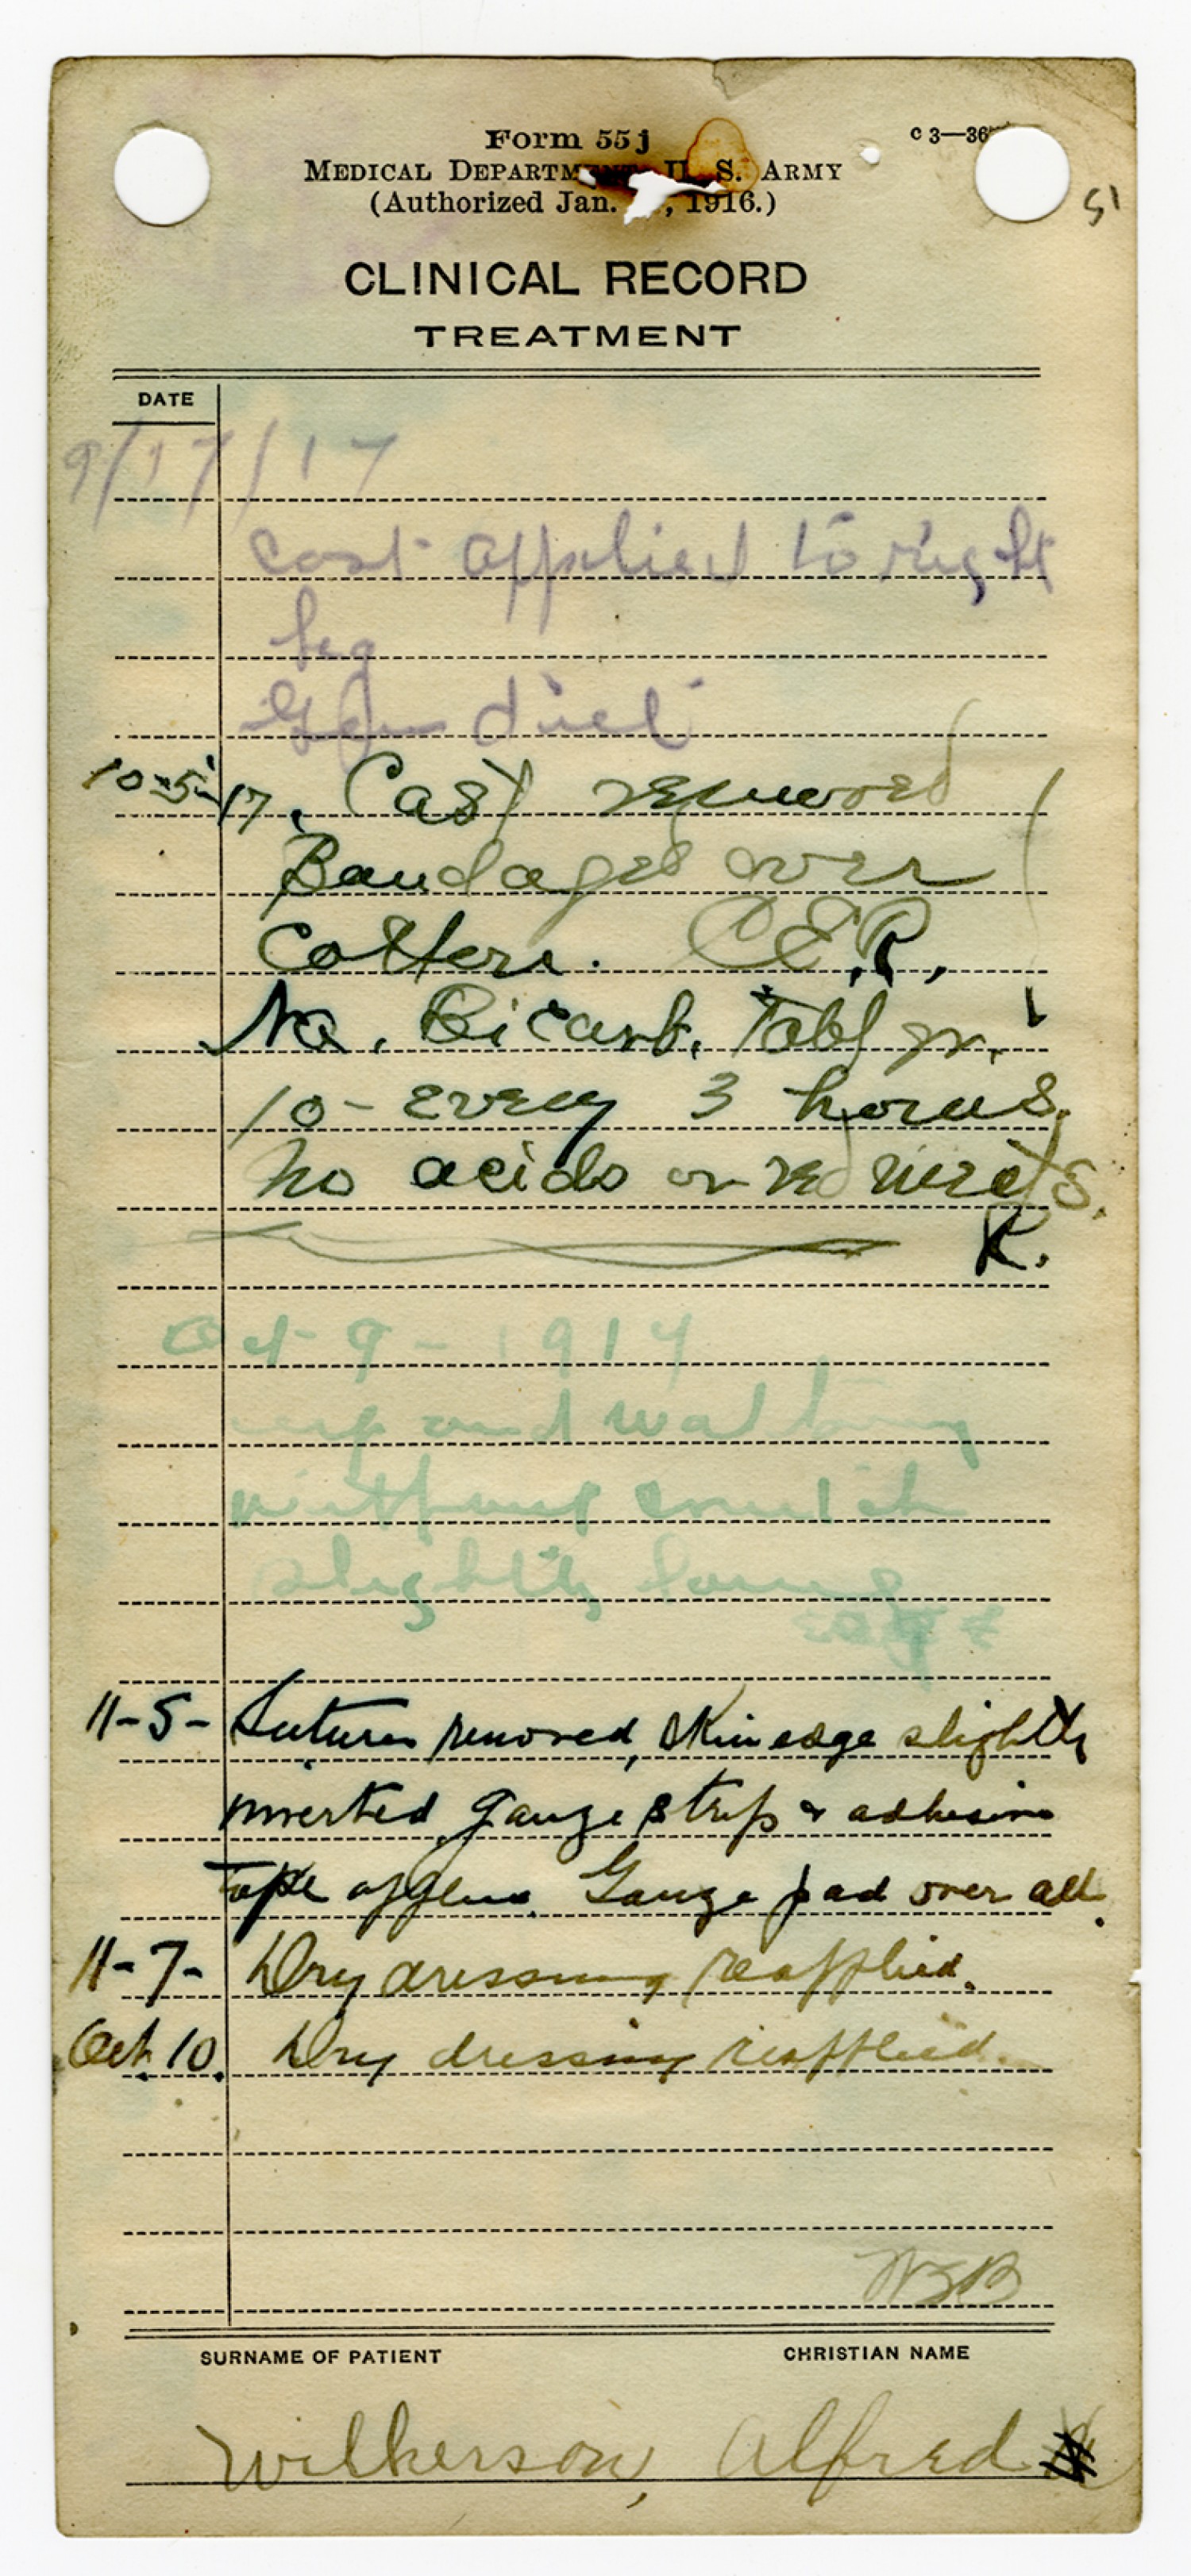 Form 55j
C 3—36
MEDICAL DEPARTM U. S. ARMY
(Authorized Jan. , 1916.)
51
CLINICAL RECORD
TREATMENT
DATE
9/17/17
cast applied to right
leg
diet
10-5-17. Cast removed
Bandaged over
Cotton. C.E.P.
Na. Bicarb. Tabl gr.
10 - every 3 hours.
No acids or red meats.
K.
Oct 9 - 1917
up and walking
without crutch
slightly lame
11-5- Sutures removed, skin edge slightly
inverted gauze strip & adhesive
tape applied. Gauze pad over all.
11-7- Dry dressing reapplied.
Oct. 10. Dry dressing reapplied.
WSB
SURNAME OF PATIENT CHRISTIAN NAME
Wilkerson, Alfred